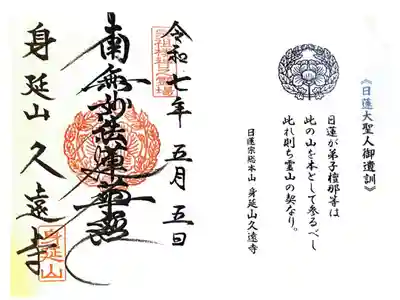 《日蓮大聖人御遺訓》
日蓮が弟子檀那等は
此の山を本として参るべし
此れ則ち霊山の契なり。
日蓮宗総本山 身延山久遠寺
令和七年 五月 五日
南無妙法蓮華経
身延山 久遠寺
身延山